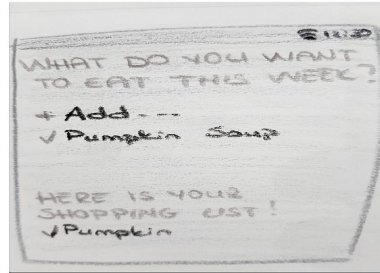 WHAT DO YOU WANT
TO EAT THIS WEEK?
+ Add ---
✓ Pumpkin Soup
HERE IS YOUR
SHOPPING LIST!
✓ Pumpkin